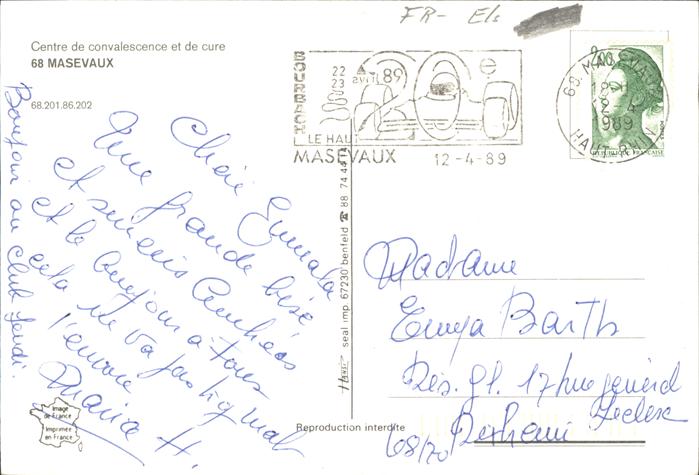 FR- Els
Centre de convalescence et de cure
68 MASEVAUX
68.201.86.202
BOURBACH
22
23
AVRIL 89
e
LE HAUT
MASEVAUX 12-4-89
68 MASEVAUX
12-4
1989
HAUT-RHIN
2,00
REPUBLIQUE FRANCAISE
Chère
Une grande bise
et sincères
et le bonjour à tous
cela ne va pas trop mal
Maria H.
Bonjour au Club Jeudi
Image
de France
Imprimée
en France
seal imp. 67230 benfeld ☎ 88 74 44
Reproduction interdite
Madame
Barth
Rés. Gl. 17 rue général
Leclerc